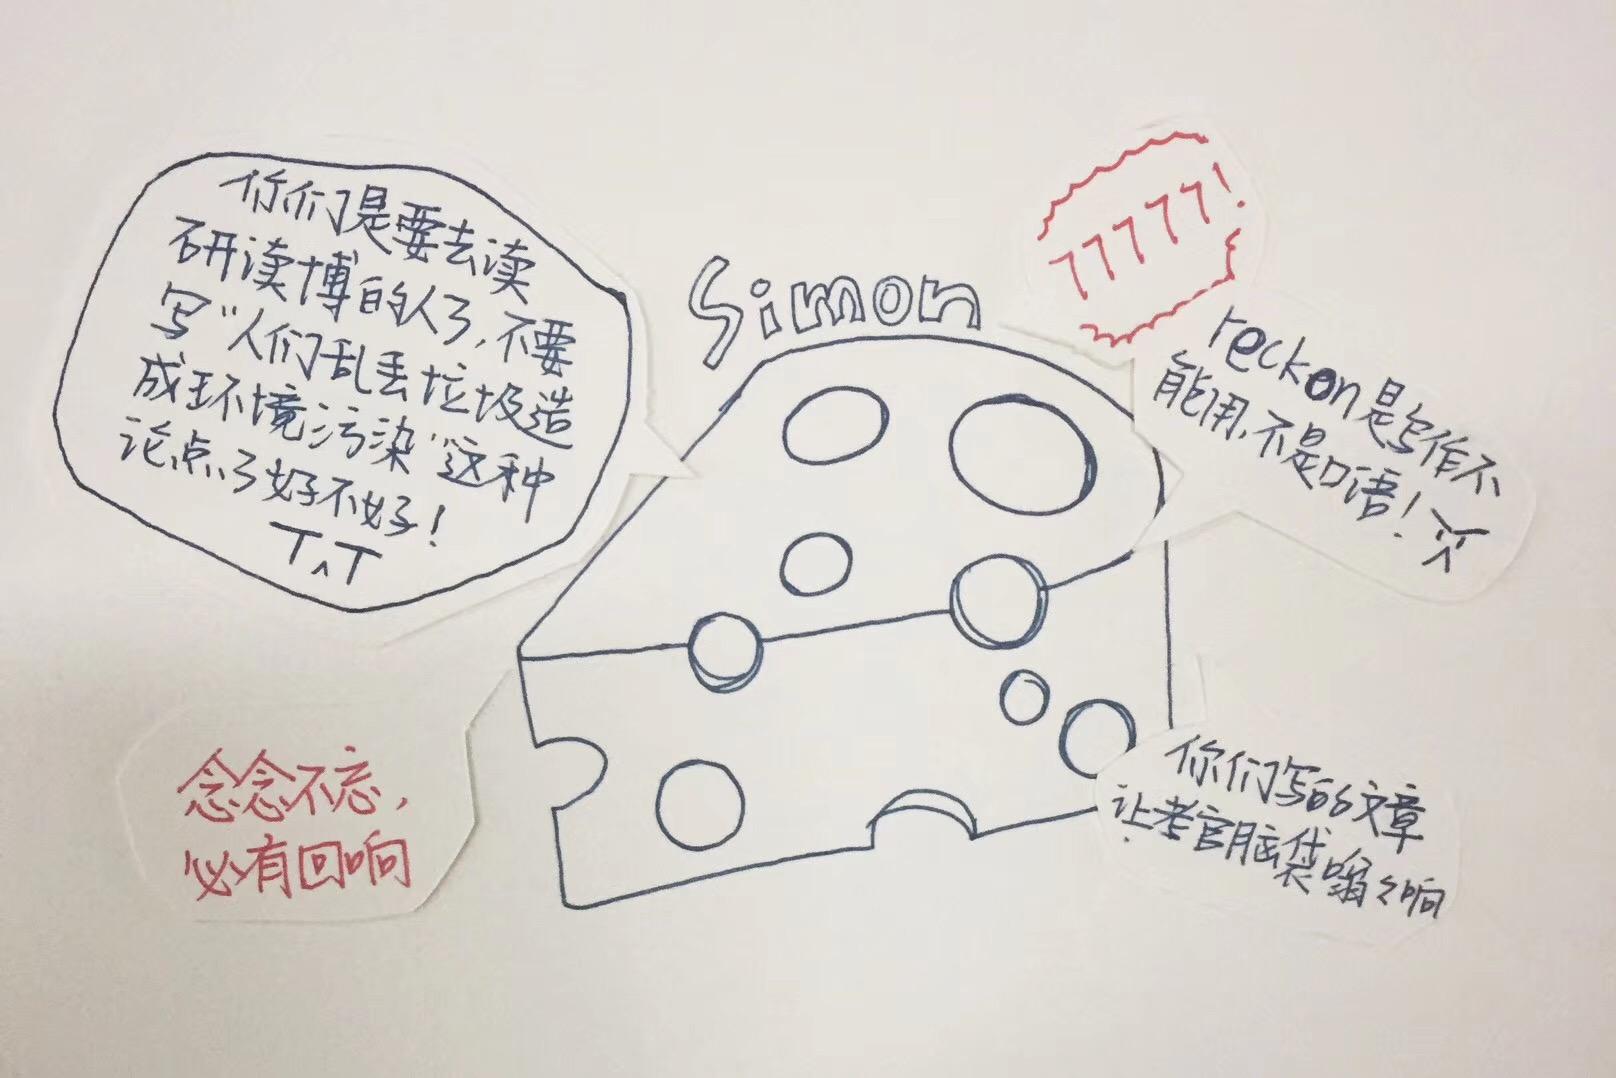 你们是要去读
研读博的人了,不要
写"人们乱丢垃圾造
成环境污染"这种
论点了好不好!
T^T
Simon
77777!
reckon是写作不
能用,不是口语!
念念不忘,
必有回响
你们写的文章
让考官脑袋嗡々响